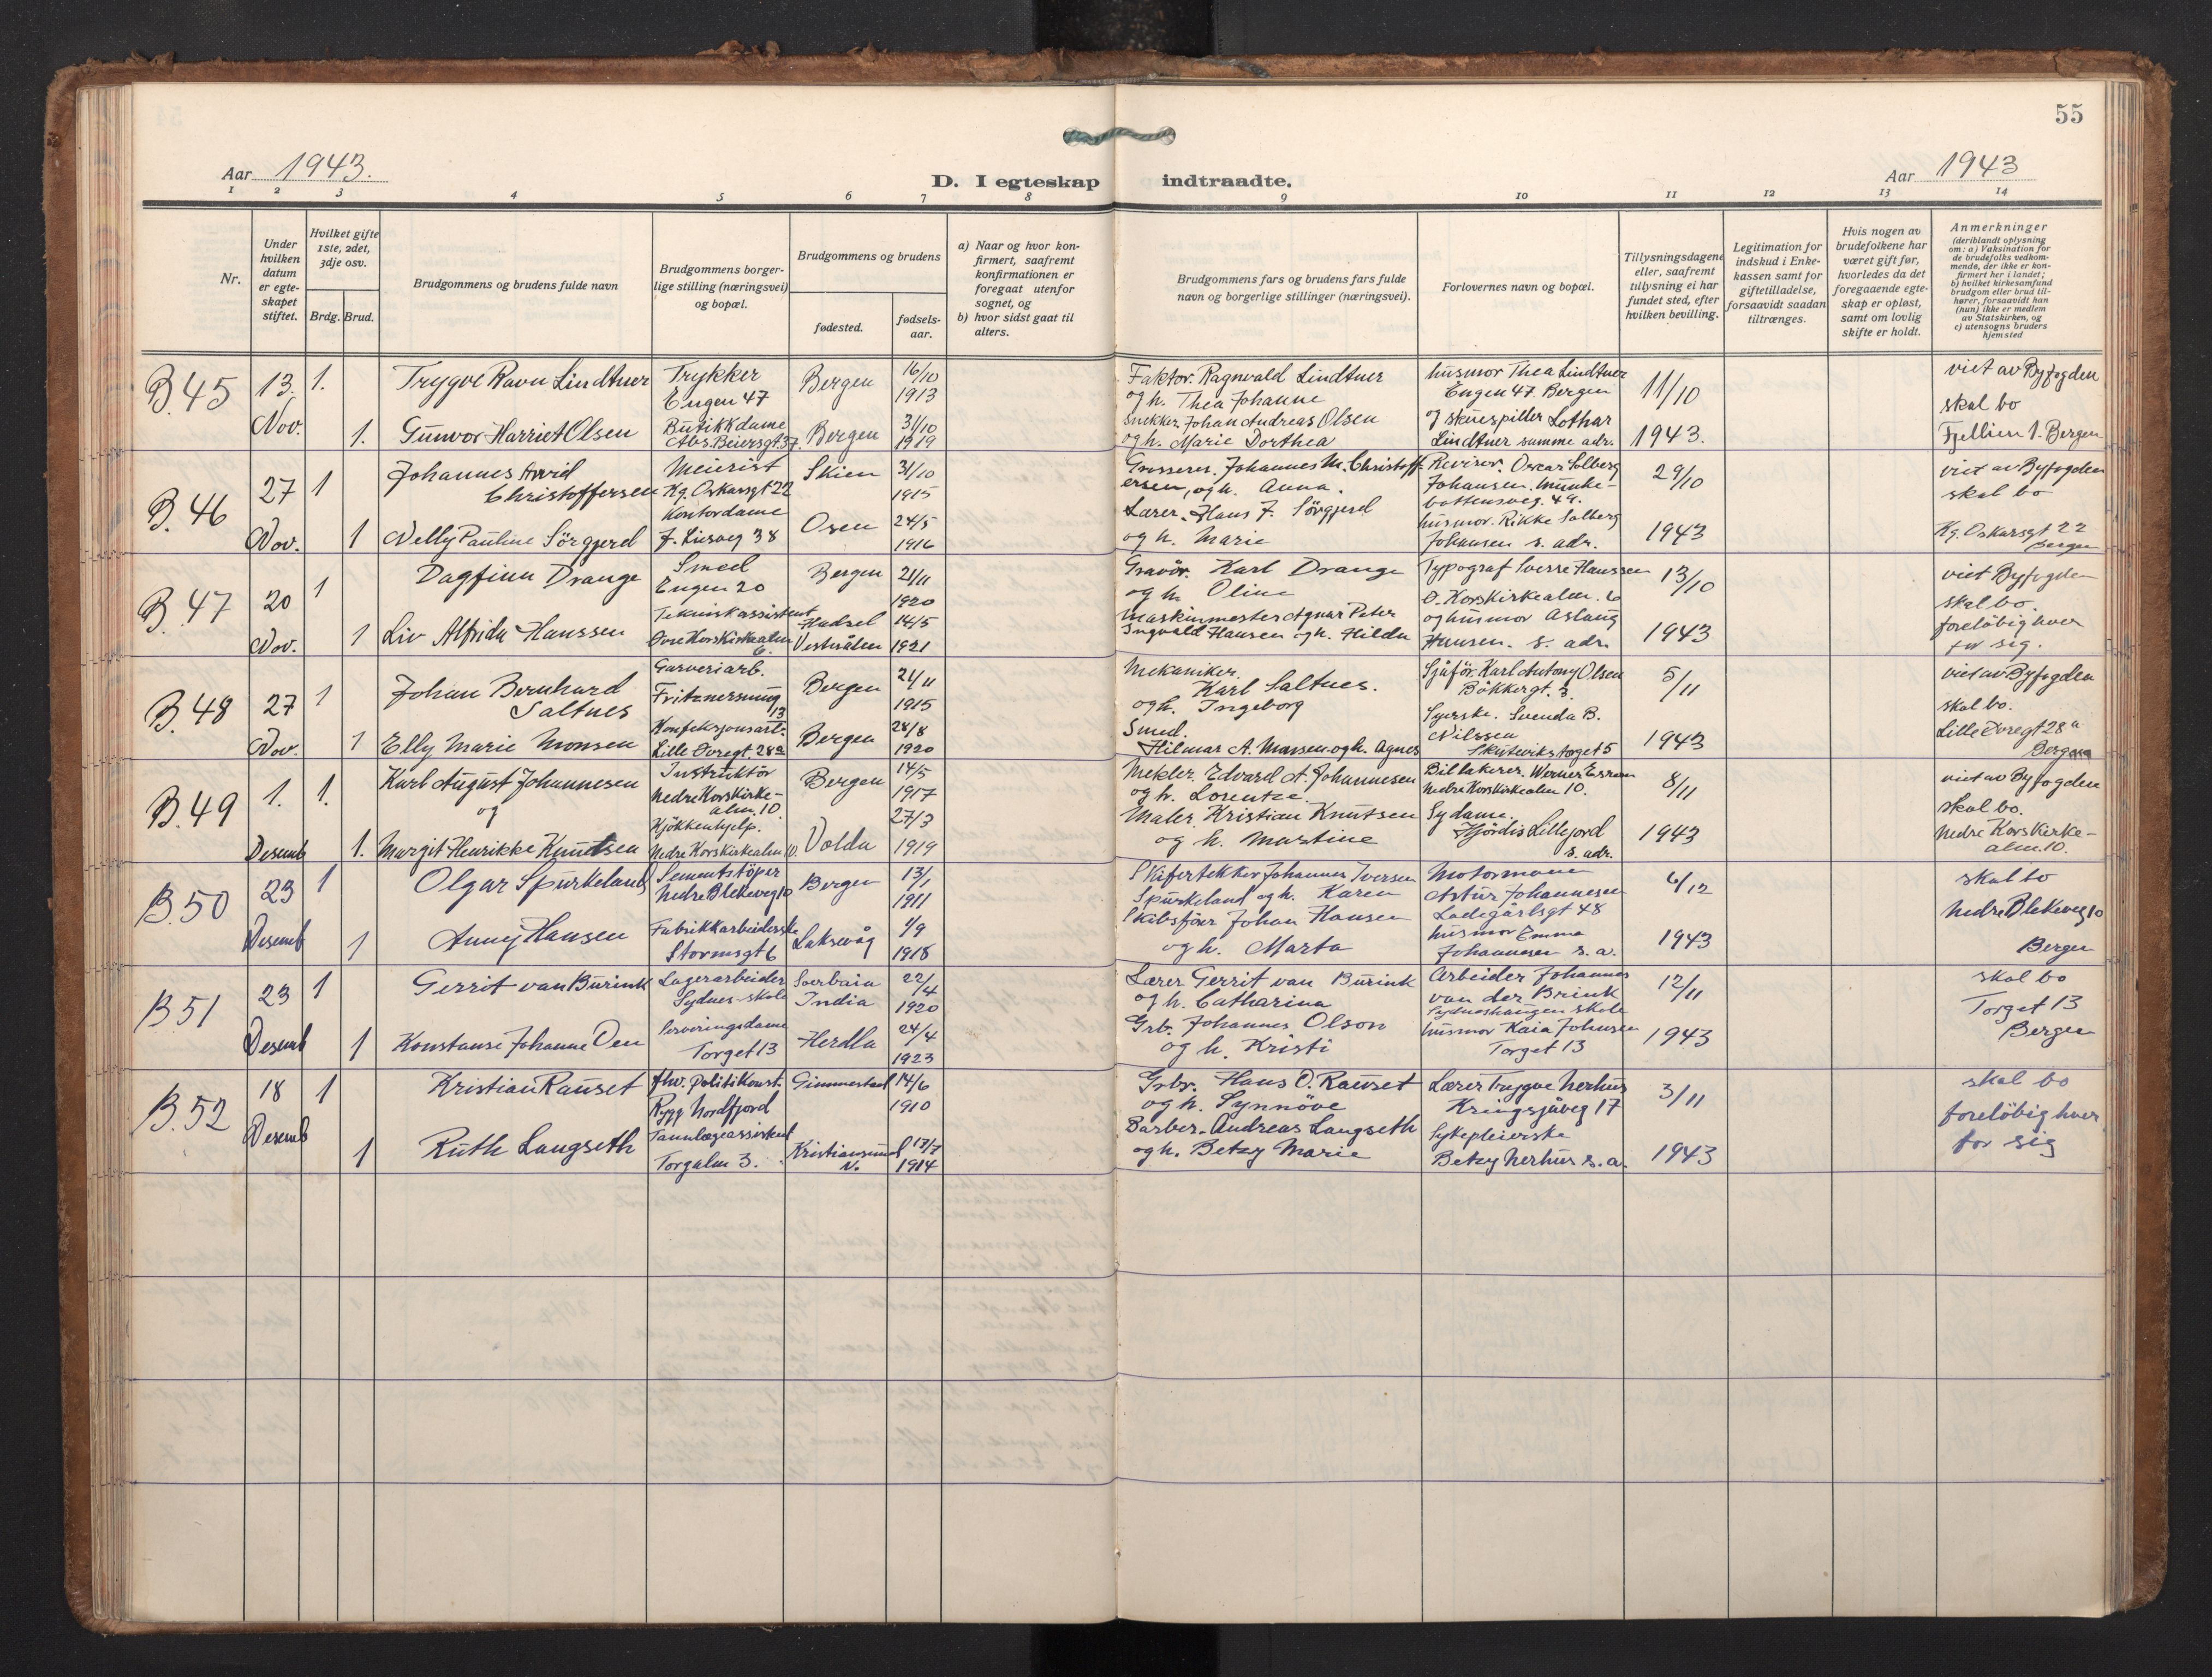 55
Aar 1943.
D. I egteskap indtraadte.
Aar 1943
1 2 3 4 5 6 7 8 9 10 11 12 13 14
Nr.
Under hvilken datum er egteskapet stiftet.
Hvilket gifte 1ste, 2det, 3dje osv.
Brdg. Brud.
Brudgommens og brudens fulde navn
Brudgommens borgerlige stilling (næringsvei) og bopæl.
Brudgommens og brudens
fødested.
fødselsaar.
a) Naar og hvor konfirmert, saafremt konfirmationen er foregaat utenfor sognet, og
b) hvor sidst gaat til alters.
Brudgommens fars og brudens fars fulde navn og borgerlige stillinger (næringsvei).
Forlovernes navn og bopæl.
Tillysningsdagene eller, saafremt tillysning ei har fundet sted, efter hvilken bevilling.
Legitimation for indskud i Enkekassen samt for giftetilladelse, forsaavidt saadan tiltrænges.
Hvis nogen av brudefolkene har været gift før, hvorledes da det foregaaende egteskap er opløst, samt om lovlig skifte er holdt.
Anmerkninger
(deriblandt oplysning om: a) Vaksination for de brudefolks vedkommende, der ikke er konfirmert her i landet;
b) hvilket kirkesamfund brudgom eller brud tilhører, forsaavidt han (hun) ikke er medlem av Statskirken, og
c) utensogns bruders hjemsted
B.45 13. Nov. 1. Trygve Ravn Lindtner
Trykker Engen 47
Bergen 16/10 1913
Faktor. Ragnvald Lindtner og h. Thea Johanne
husmor Thea Lindtner Engen 47. Bergen
11/10 1943.
viet av Byfogden skal bo Fjellien 1. Bergen
1. Gunvor Harriet Olsen
Butikkdame Abs. Beiersgt. 37.
Bergen 31/10 1919
Snekker Johan Andreas Olsen og h. Marie Dorthea
og skuespiller Lothar Lindtner samme adr.
B.46 27 Nov. 1 Johannes Arvid Christoffersen
Meierist Kg. Oskarsgt 22
Skien 31/10 1915
Grosserer. Johannes M. Christoffersen, og h. Anna.
Revisor. Oscar Solberg Johansen. Munkebottensveg. 49.
29/10 1943
viet av Byfogden skal bo Kg. Oskarsgt 22 Bergen
1 Nelly Pauline Sörgjerd
Kontordame J. Liesveg 38
Osen 24/5 1916
Lærer. Hans J. Sörgjerd og h. Marie
husmor. Rikke Solberg Johansen s. adr.
B.47 20 Nov. 1 Dagfinn Drange
Smed Engen 20
Bergen 21/11 1920
Gravör. Karl Drange og h. Oline
Typograf Sverre Hanssen Ö. Korskirkealm. 6
13/10 1943
viet Byfogden skal bo. foreløbig hver for sig.
1 Liv Alfrida Hanssen
Teknisk assistent Övre Korskirkealm 6.
Hadsel Vesterålen 14/5 1921
Maskinmester Agnar Peter Ingvald Hansen og h. Hilda
og husmor Aslaug Hansen. s. adr.
B.48 27 Nov. 1 Johan Bernhard Saltnes
Garveriarb. Fritznersmug 13
Bergen 24/11 1915
Mekaniker. Karl Saltnes. og h. Ingeborg
Sjåför. Karl Antony Olsen Bökkergt. 3.
5/11 1943
viet av Byfogden skal bo. Lille Övregt 28a Bergen
1 Elly Marie Monsen
Konfeksjonsarb. Lille Övregt. 28a
Bergen 28/8 1920
Smed. Hilmar A. Monsen og h. Agnes
Syerske. Svenda B. Nilssen Skuteviks torget 5
B.49 1. Desemb 1. Karl August Johannesen og
Instruktör Nedre Korskirkealm. 10.
Bergen 14/5 1917
Mekler. Edvard A. Johannesen og h. Lorentze.
Billakerer. Werner Nedre Korskirkealm 10.
8/11 1943
viet av Byfogden skal bo. Nedre Korskirkealm. 10.
1. Margit Henrikke Knutsen
Kjökkenhjelp. Nedre Korskirkealm 10.
Volda 27/3 1919
Maler. Kristian Knutsen og h. Martine
Sydame. Hjördis Lillefjord s. adr.
B.50 23 Desemb 1 Olgar Spurkeland
Sementstöper Nedre Blekeveg 10
Bergen 13/1 1911
Skifertekker Johannes Iversen Spurkeland og h. Karen
Motormann Astur Johannesen Ladegårdsgt 48
6/12 1943
skal bo Nedre Blekeveg 10 Bergen
1 Anny Hansen
Fabrikkarbeiderske Stormsgt 6
Laksevåg 1/9 1918
Skibsförer Johan Hansen og h. Marta
husmor Emma Johannesen s. a.
B 51 23 Desemb 1 Gerrit van Burink
Lagerarbeider Sydnes-skole
Soerbaia India 22/4 1920
Lærer Gerrit van Burink og h. Catharina
Arbeider Johannes van der Brink Sydneshaugen skole
12/11 1943
skal bo Torget 13 Bergen
1 Konstanse Johanne Oen
Serveringsdame Torget 13
Herdla 24/4 1923
Grb. Johannes Olson og h. Kristi
husmor Kaia Johnsen Torget 13
B.52 18 Desemb 1 Kristian Rauset
fhv. politikonst. Rygg Nordfjord
Gimmestad 14/6 1910
Grbr. Hans O. Rauset og h. Synnöve
Lærer Trygve Nerhus Kringsjåveg 17
3/11 1943
skal bo foreløbig hver for sig
1 Ruth Langseth
Tannlægeassistent Torgalm 3.
Kristiansund N. 17/7 1914
Barber. Andreas Langseth og h. Betzy Marie
Sykepleierske Betzy Nerhus s. a.